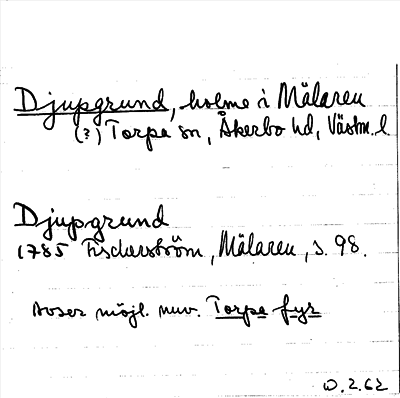 Djupgrund, holme i Mälaren
(?) Torpa sn, Åkerbo hd, Västm. l.
Djupgrund
1785 Fischerström, Mälaren, s. 98.
Avser möjl. nuv. Torpa fyr
O.2.62